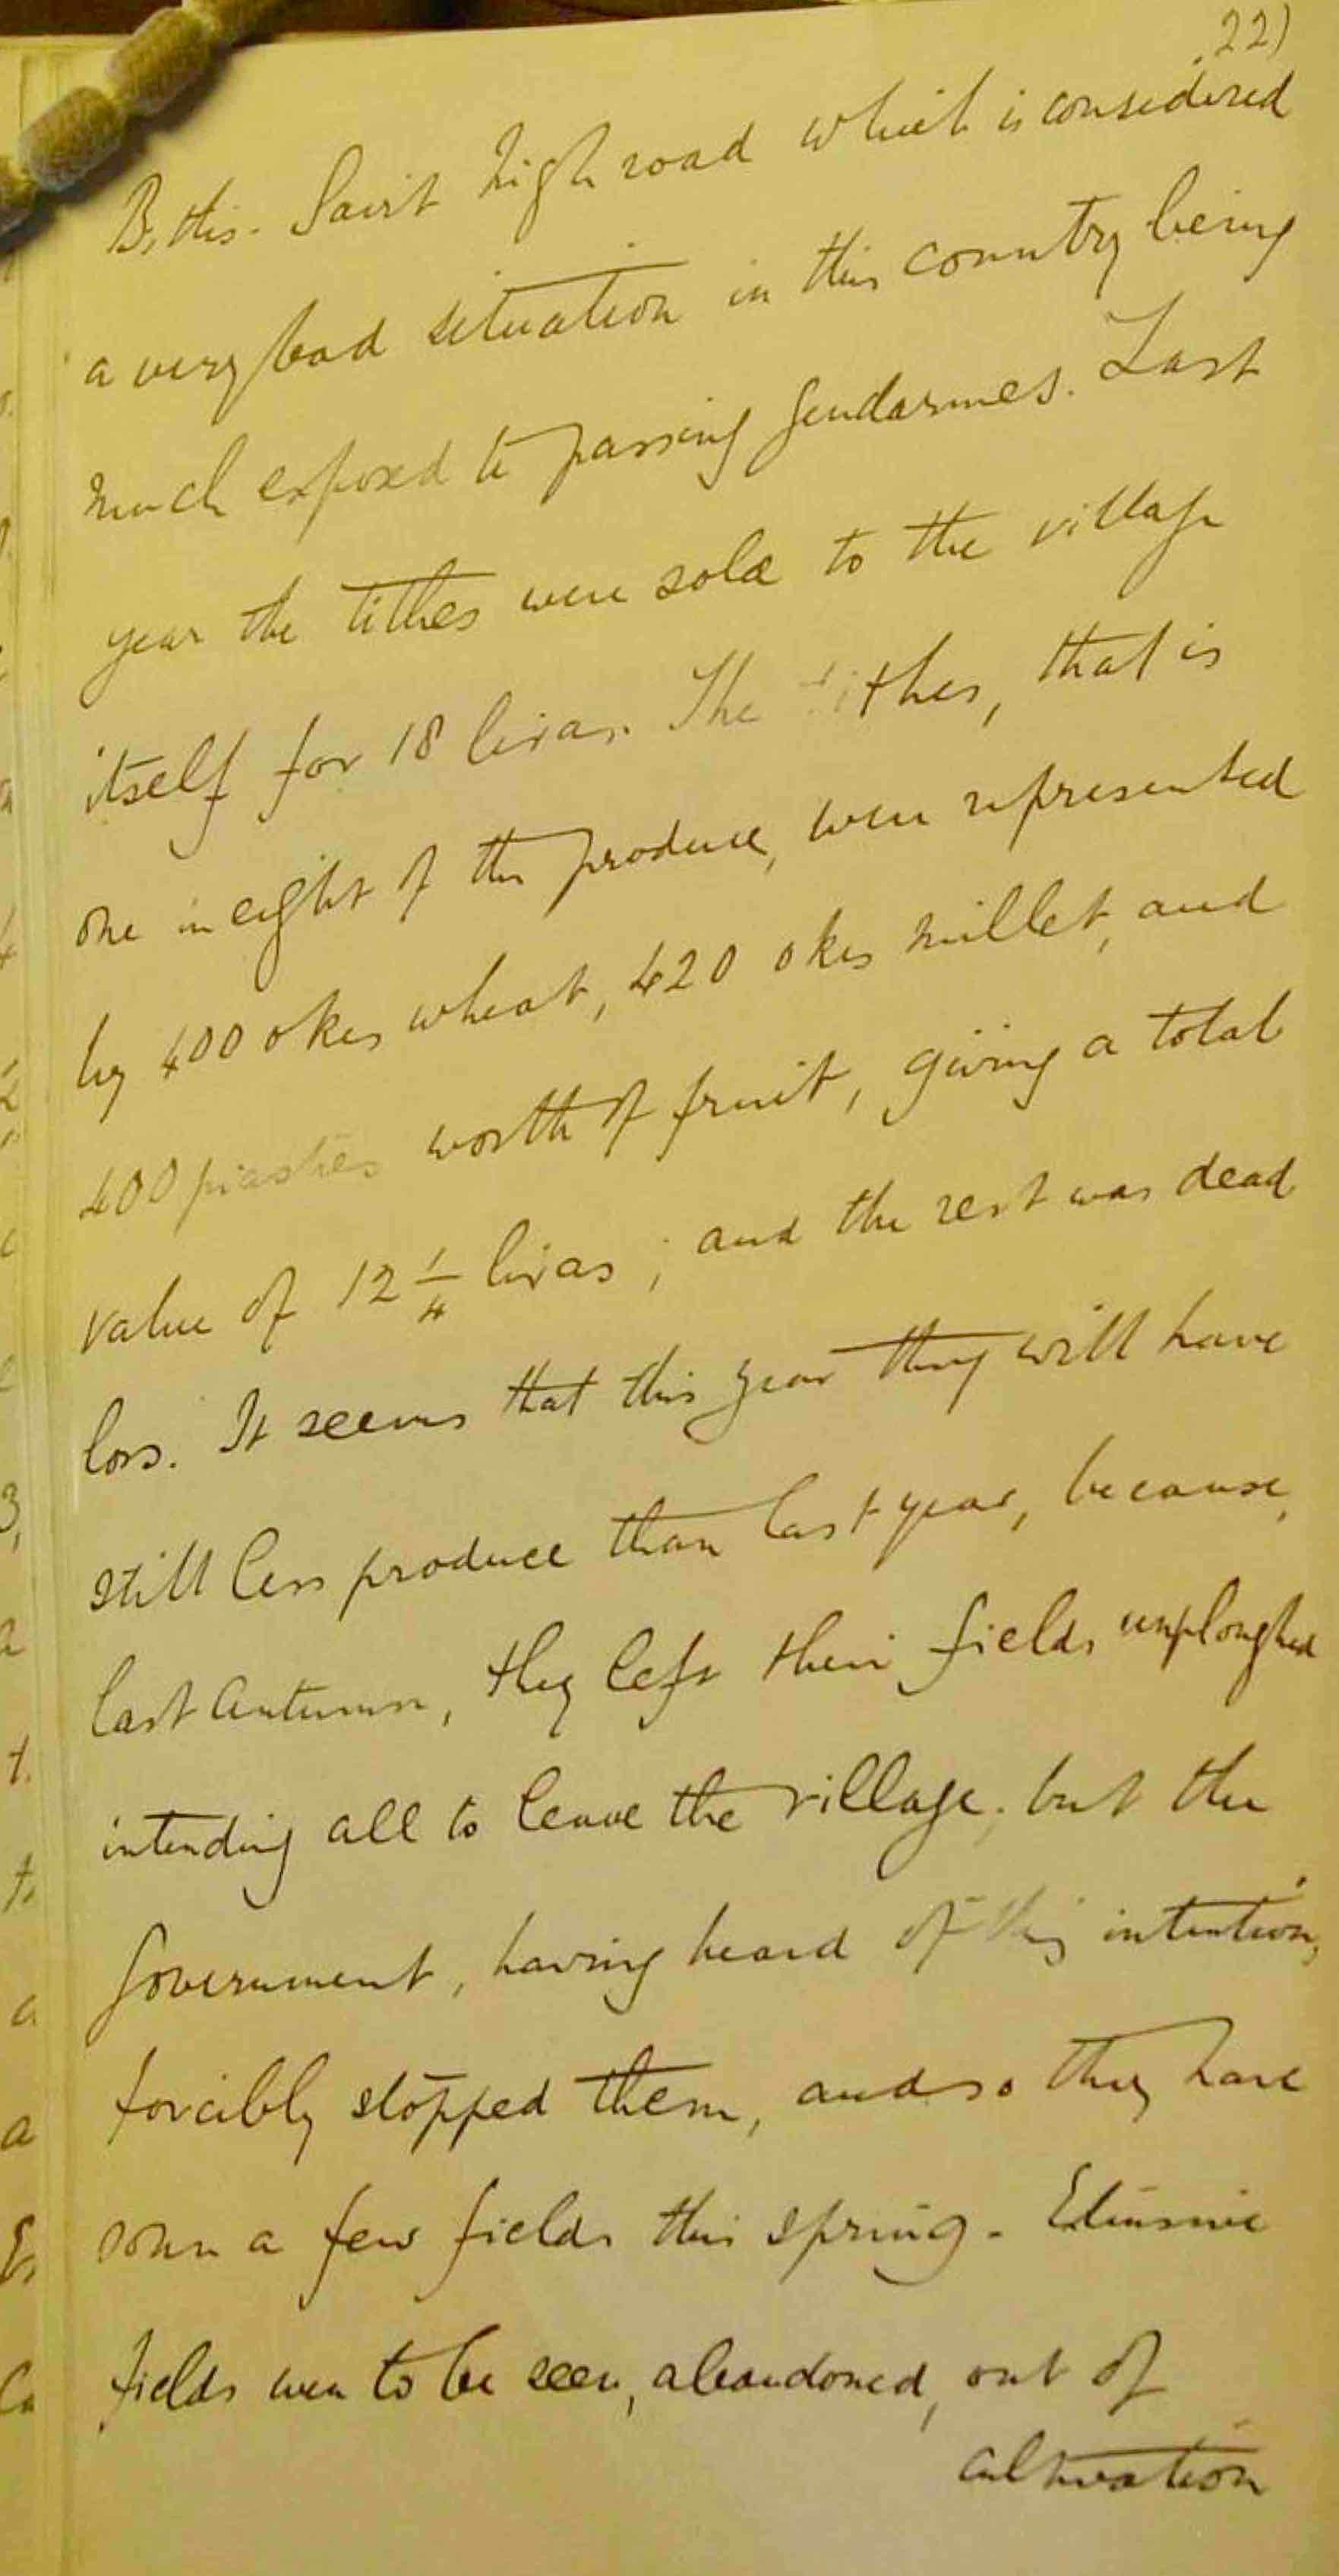 22)
Bitlis-Sairt high road which is considered
a very bad situation in this country being
much exposed to passing gendarmes. Last
year the tithes were sold to the village
itself for 18 liras. The tithes, that is
one in eight of the produce, were represented
by 400 okes wheat, 420 okes millet, and
400 piastres worth of fruit, giving a total
value of 12 1/4 liras; and the rest was dead
loss. It seems that this year they will have
still less produce than last year, because,
last Autumn, they left their fields unploughed
intending all to leave the village; but the
Government, having heard of this intention,
forcibly stopped them, and so they have
sown a few fields this spring. Extensive
fields were to be seen, abandoned, out of
cultivation